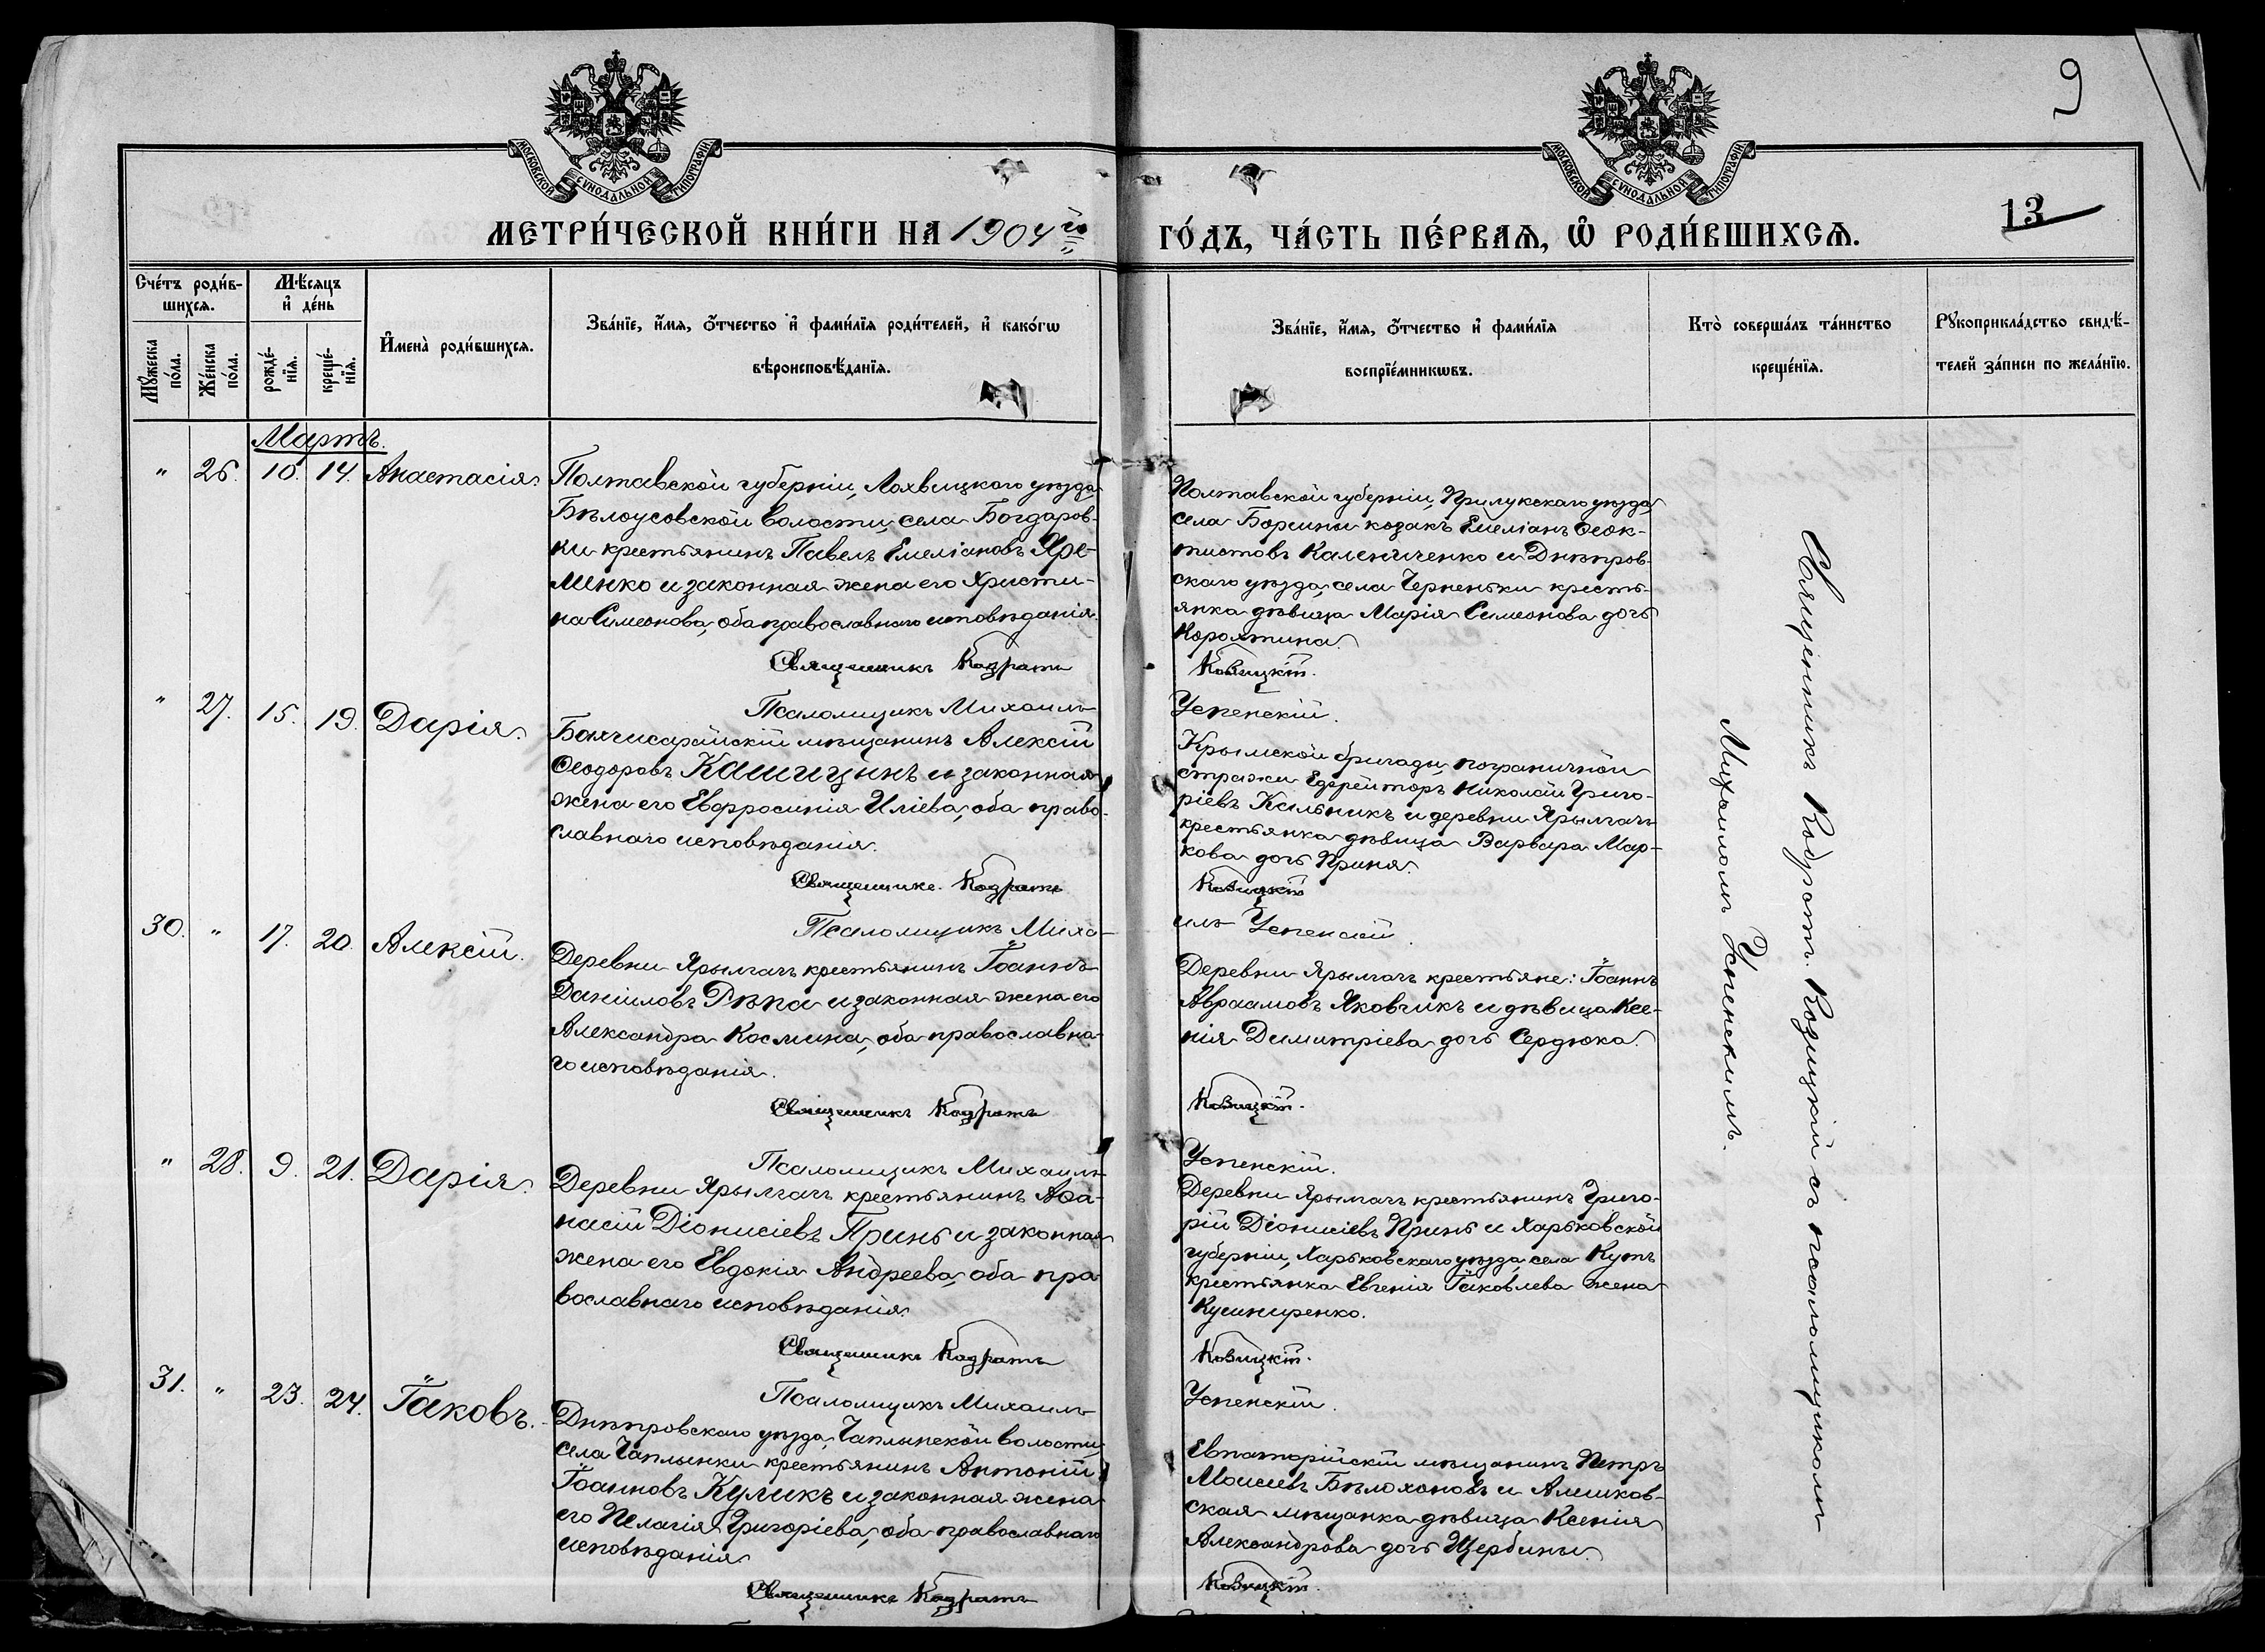 МОСКОВСКОЙ СѴНОДАЛЬНОЙ ТИПОГРАФІИ
МОСКОВСКОЙ СѴНОДАЛЬНОЙ ТИПОГРАФІИ
9
13
МЕТРИ́ЧЕСКОЙ КНИ́ГИ НА 1904й
ГО́ДЪ, ЧА́СТЬ ПЕ́РВАѦ, Ѡ҆ РОДИ́ВШИХСѦ.
Сче́тъ роди́в-
шихсѧ.
Мꙋ́жеска
по́ла.
Же́нска
по́ла.
Мѣ́сѧцъ
и҆ де́нь
рожде́-
нїѧ.
креще́-
нїѧ.
И҆мена̀ роди́вшихсѧ.
Зва́нїе, и҆́мѧ, ѻ҆́тчество и҆ фами́лїѧ роди́телей, и҆ како́гѡ
вѣроисповѣ́данїѧ.
Зва́нїе, и҆́мѧ, ѻ҆́тчество и҆ фами́лїѧ
воспрїе́мникѡвъ.
Кто̀ соверша́лъ та́инство
креще́нїѧ.
Рꙋкоприкла́дство свидѣ́-
телей за́писи по жела́нїю.
Мартъ.
" 26. 10. 14. Анастасія.
Полтавской губерніи, Лохвицкого уѣзда
Бѣлоусовской волости, села Богдаров-
ки крестьянинъ Павелъ Емеліановъ Яре-
менко и законная жена его Христи-
на Симеонова, оба православного исповѣданія.
Священникъ Кодратъ
Псаломщикъ Михаилъ
Полтавской губерніи, Прилукскаго уѣзда,
села Борсины козакъ Емеліанъ Ѳеок-
тистовъ Калениченко и Днѣпров-
скаго уѣзда, села Черненьки кресть-
янка дѣвица Марія Симеонова дочь
Коротина.
Козицкій.
Успенскій.
" 27. 15. 19. Дарія.
Бахчисарайскій мѣщанинъ Алексій
Ѳеодоровъ Кашицынъ и законная
жена его Евфросинія Иліева, оба право-
славнаго исповѣданія.
Священникъ Кодратъ
Псаломщикъ Миха-
Крымской бригады, пограничной
стражи Ефрейторъ Николай Григо-
ріевъ Кильникъ и деревни Ярылгачъ
крестьянка дѣвица Варвара Мар-
кова дочь Приня.
Козицкій
илъ Успенскій.
30. " 17. 20. Алексій.
Деревни Ярылгачъ крестьянинъ Іоаннъ
Даніиловъ Рѣпа и законная жена его
Александра Космина, оба православна-
го исповѣданія.
Священникъ Кодратъ
Псаломщикъ Михаилъ
Деревни Ярылгачъ крестьяне: Іоаннъ
Авраамовъ Яковчикъ и дѣвица Ксе-
нія Димитріева дочь Сердюка.
Козицкій.
Успенскій.
" 28. 9. 21. Дарія.
Деревни Ярылгачъ крестьянинъ Аѳа-
насій Діонисіевъ Принь и законная
жена его Евдокія Андреева, оба пра-
вославнаго исповѣданія.
Священникъ Кодратъ
Псаломщикъ Михаилъ
Деревни Ярылгачъ крестьянинъ Григо-
рій Діонисіевъ Принь и Харьковской
губерніи, Харьковскаго уѣзда, села Кутъ
крестьянка Евгенія Іаковлева жена
Кушниренко.
Козицкій.
Успенскій.
31. " 23. 24. Іаковъ.
Днѣпровскаго уѣзда, Чаплынской волости
села Чаплынки крестьянинъ Антоній
Іоанновъ Куликъ и законная жена
его Пелагія Григоріева, оба православнаго
исповѣданія
Священникъ Кодратъ
Евпаторійскій мѣщанинъ Петръ
Моисеевъ Бѣлохоновъ и Алешков-
ская мѣщанка дѣвица Ксенія
Александрова дочь Щербины.
Козицкій.
Священникъ Кодратъ Козицкій съ псаломщикомъ
Михаиломъ Успенскимъ.